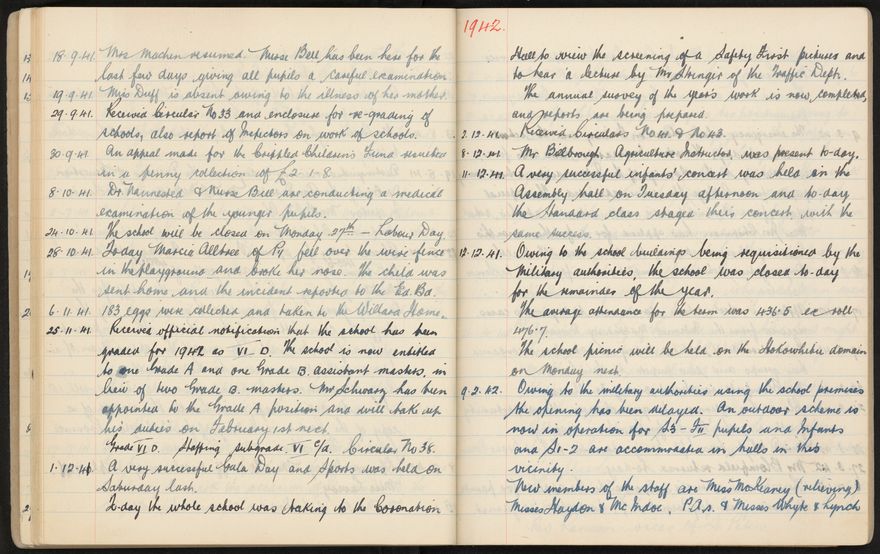 18·9·41. Mrs Machin resumed. Nurse Bell has been here for the
last few days giving all pupils a careful examination.
19·9·41. Miss Duff is absent owing to the illness of her mother.
29·9·41. Received Circular No 33 and enclosure for re-grading of
schools, also report of Inspectors on work of schools.
30·9·41. An appeal made for the Crippled Children's Fund resulted
in a penny collection of £2-1-8.
8·10·41. Dr. & Nurse Bell are conducting a medical
examination of the younger pupils.
24·10·41. The school will be closed on Monday 27th – Labour Day
28·10·41. To-day Marcia Alltree of P4 fell over the wire fence
in the playground and broke her nose. The child was
sent home and the incident reported to the Ed. Bd.
6·11·41. 183 eggs were collected and taken to the Willard Home.
25·11·41. Received official notification that the school has been
graded for 1942 as VI D. The school is now entitled
to one Grade A and one Grade B. assistant masters, in
lieu of two Grade B. masters. Mr Schwarz has been
appointed to the Grade A position and will take up
his duties on February 1st next.
Grade VI D. Staffing subgrade VI C/a. Circular No 38.
1·12·41 A very successful Gala Day and Sports was held on
Saturday last.
To-day the whole school was taking to the Coronation
1942.
Hall to view the screening of a Safety First pictures and
to hear a lecture by Mr Stringer of the Traffic Dept.
The annual survey of the year's work is now completed
and reports are being prepared.
2·12·41. Received Circulars No 41 & No 43.
8·12·41. Mr Bilbrough, Agriculture Instructor, was present to-day.
11·12·41. A very successful infants' concert was held in the
Assembly hall on Tuesday afternoon and to-day
the Standard class staged their concert with the
same success.
12·12·41. Owing to the school buildings being requisitioned by the
Military authorities, the school was closed to-day
for the remainder of the year.
The average attendance for the term was 436·5 ex roll
476·7.
The school picnic will be held on the Hokowhitu domain
on Monday next.
9·2·42. Owing to the military authorities using the school premises
the opening has been delayed. An outdoor scheme is
now in operation for S3 – FII pupils and Infants
and S1-2 are accommodated in halls in this
vicinity.
New members of the staff are Miss McKeaney (relieving)
Misses Haydon & McIndoe, P.A.s. & Misses Whyte & Lynch